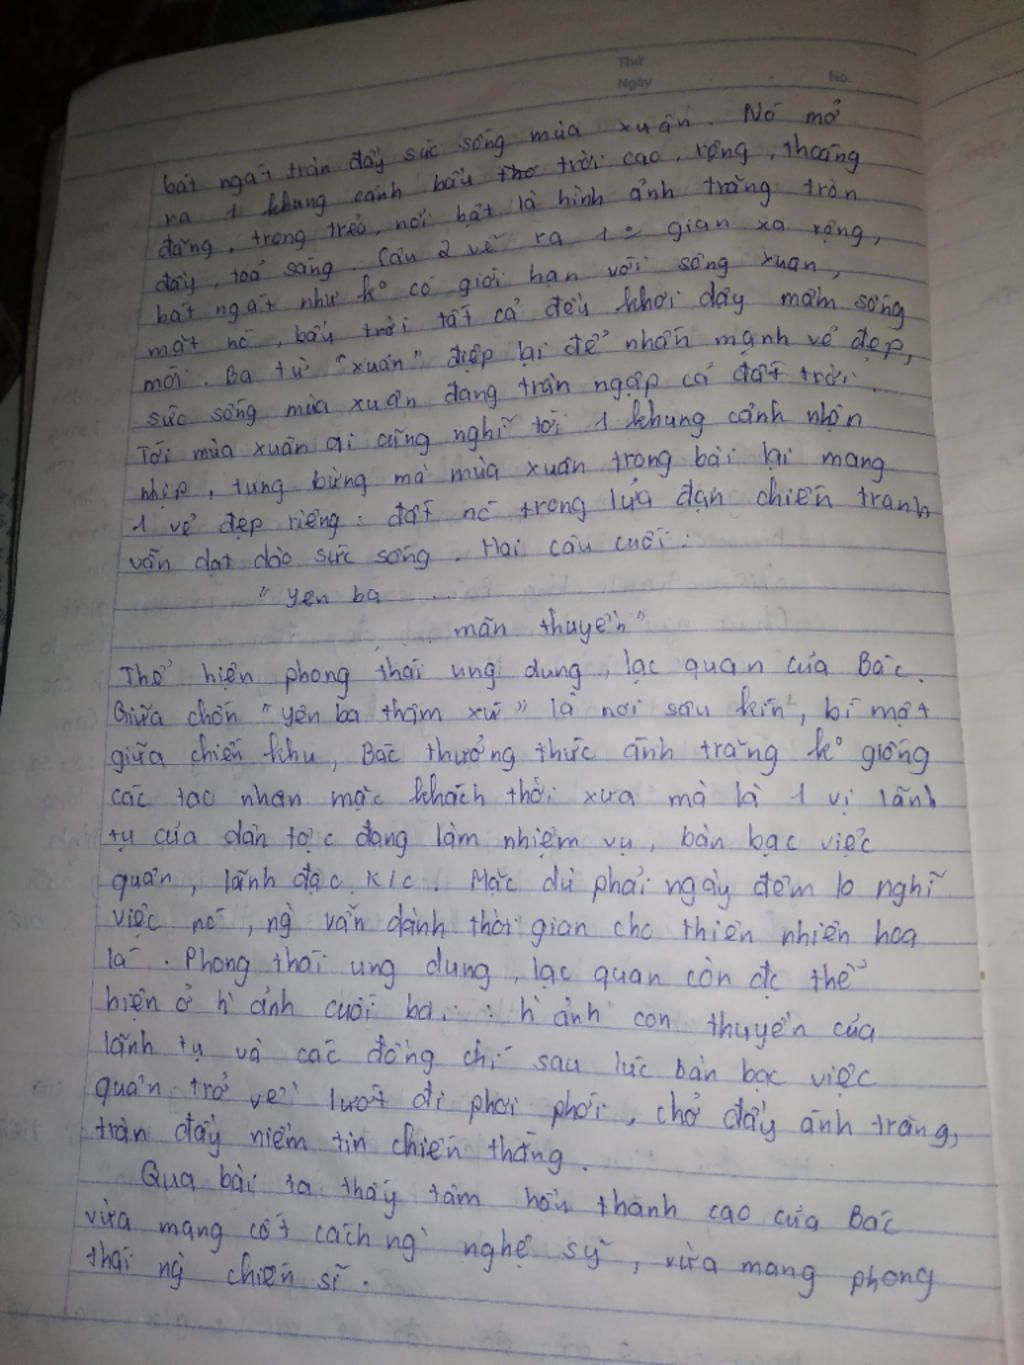 Thứ
Ngày No.
bát ngát tràn đầy sức sống mùa xuân. Nó mở
ra 1 khung cảnh bầu trời cao, rộng, thoáng
đãng, trong trẻo, nổi bật là hình ảnh trăng tròn
đầy, toả sáng. Câu 2 vẽ ra 1 = gian xa rộng,
bát ngát như k° có giới hạn với sông xuân,
mặt nc, bầu trời tất cả đều khơi dậy mầm sống
mới. Ba từ "xuân" điệp lại để nhấn mạnh vẻ đẹp,
sức sống mùa xuân đang tràn ngập cả đất trời.
Tới mùa xuân ai cũng nghĩ tới 1 khung cảnh nhộn
nhịp, tưng bừng mà mùa xuân trong bài lại mang
1 vẻ đẹp riêng: đất nc trong lửa đạn chiến tranh
vẫn dạt dào sức sống. Hai câu cuối:
"Yên ba ...
mãn thuyền"
Thể hiện phong thái ung dung, lạc quan của Bác.
Giữa chốn "yên ba thâm xứ" là nơi sâu kín, bí mật
giữa chiến khu, Bác thưởng thức ánh trăng k° giống
các tao nhân mặc khách thời xưa mà là 1 vị lãnh
tụ của dân tộc đang làm nhiệm vụ, bàn bạc việc
quân, lãnh đạo k/c. Mặc dù phải ngày đêm lo nghĩ
việc nc, ng` vẫn dành thời gian cho thiên nhiên hoa
lá. Phong thái ung dung, lạc quan còn đc thể
hiện ở h` ảnh cuối bài: h` ảnh con thuyền của
lãnh tụ và các đồng chí sau lúc bàn bạc việc
quân trở về lướt đi phơi phới, chở đầy ánh trăng,
tràn đầy niềm tin chiến thắng.
Qua bài ta thấy tâm hồn thanh cao của Bác
vừa mang cốt cách ng` nghệ sỹ, vừa mang phong
thái ng` chiến sĩ.